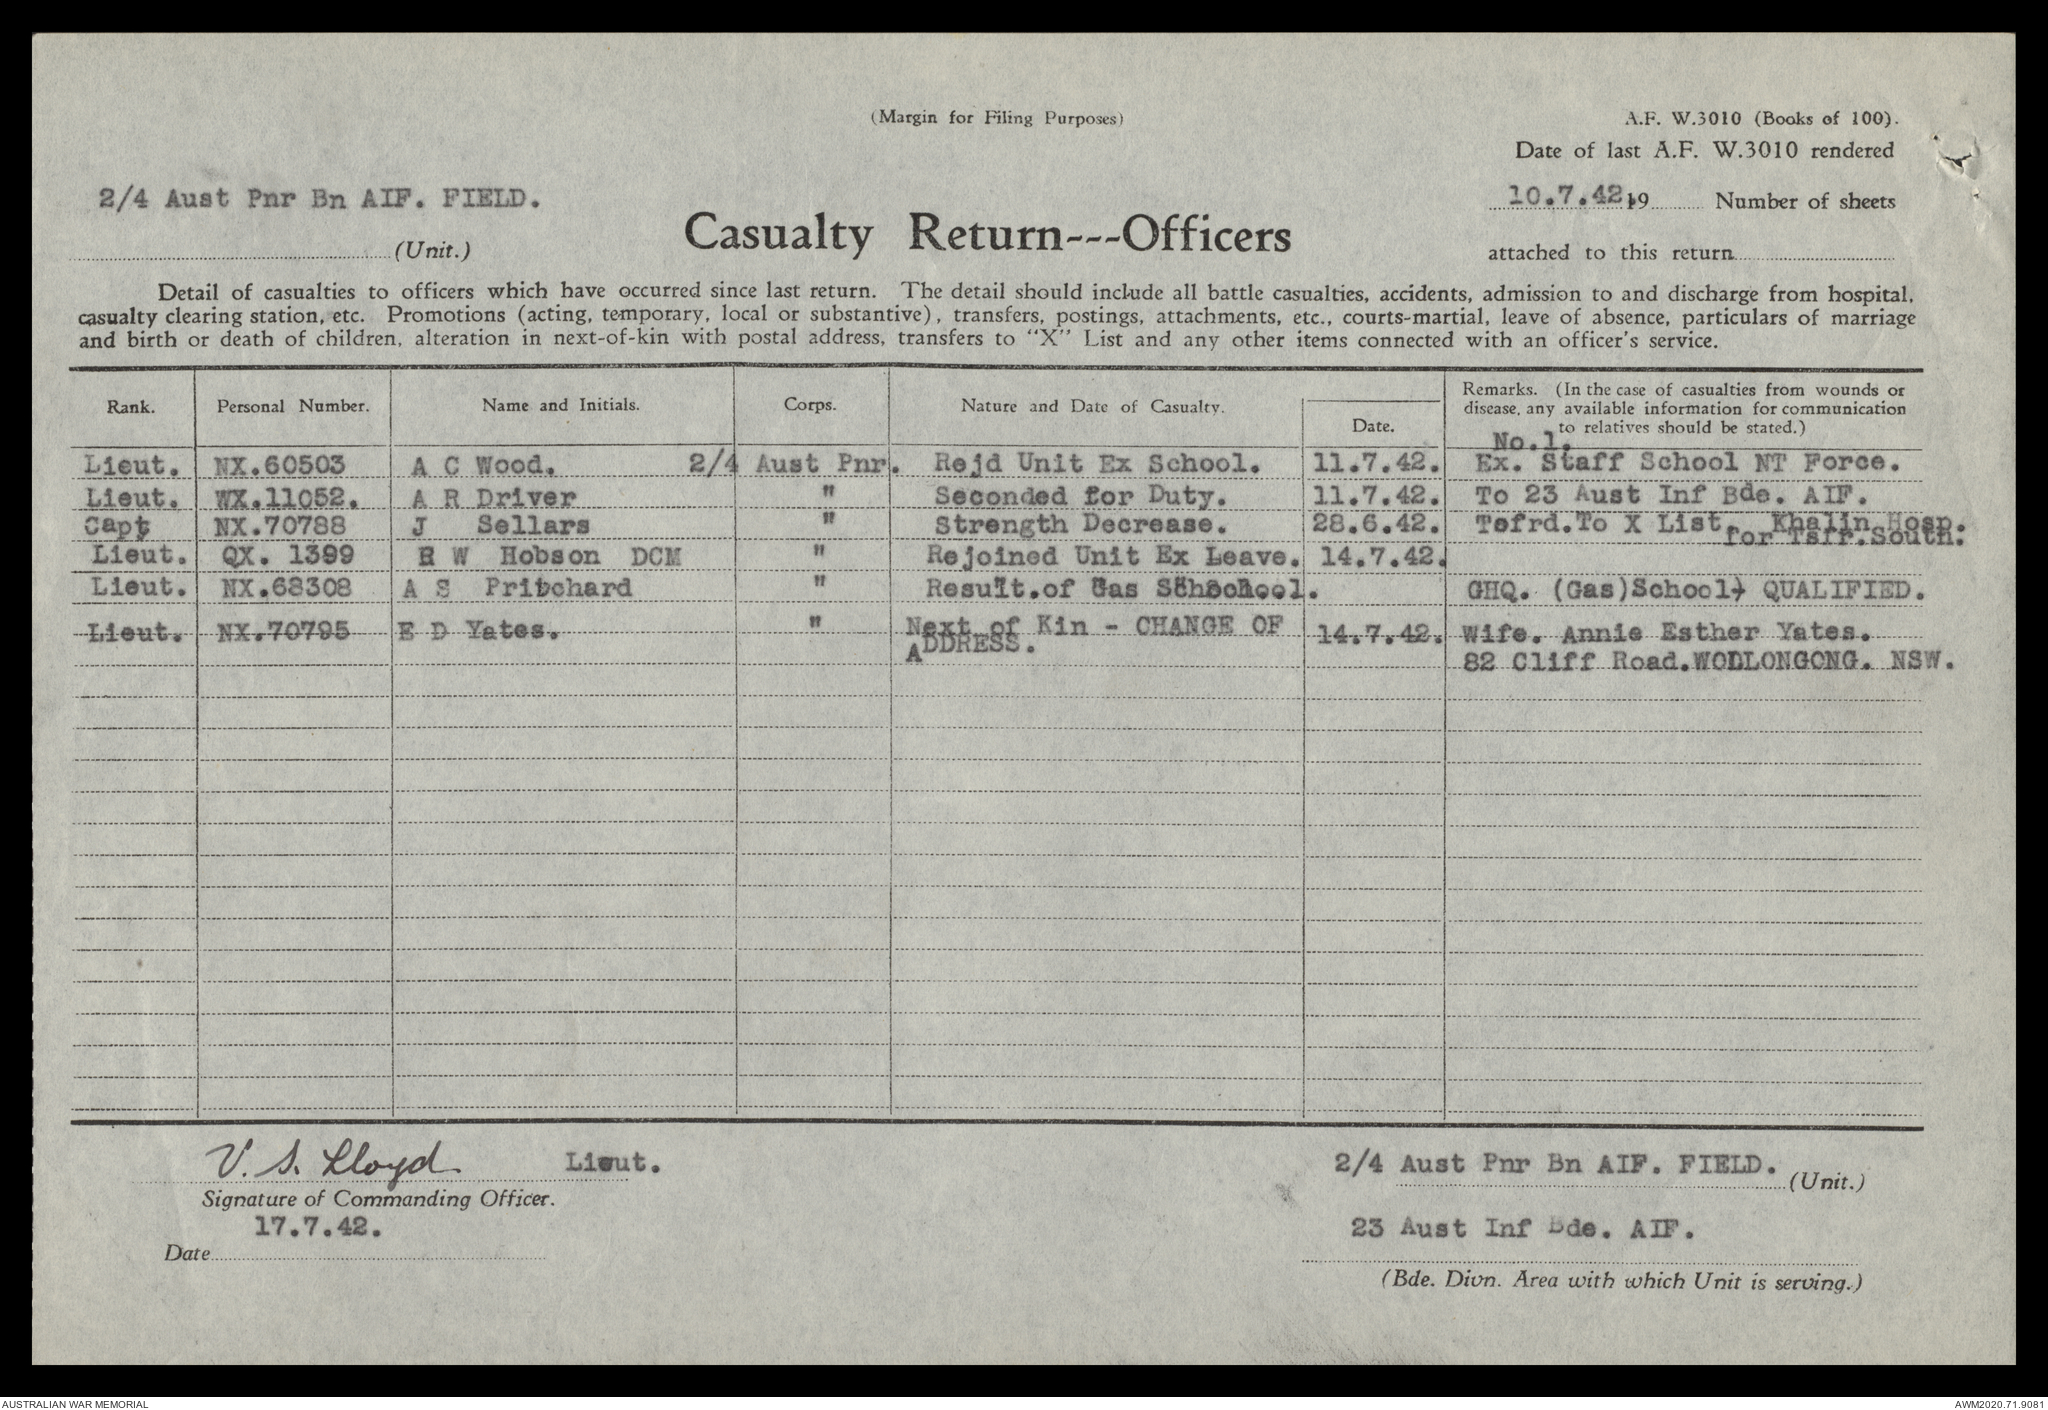 (Margin for Filing Purposes)
A.F. W.3010 (Books of 100).
Date of last A.F. W.3010 rendered
2/4 Aust Pnr Bn AIF. FIELD.
10.7.42.19 Number of sheets
(Unit.)
Casualty Return---Officers
attached to this return
Detail of casualties to officers which have occurred since last return. The detail should include all battle casualties, accidents, admission to and discharge from hospital,
casualty clearing station, etc. Promotions (acting, temporary, local or substantive), transfers, postings, attachments, etc., courts-martial, leave of absence, particulars of marriage
and birth or death of children, alteration in next-of-kin with postal address, transfers to "X" List and any other items connected with an officer's service.
Rank. Personal Number. Name and Initials. Corps. Nature and Date of Casualty. Date. Remarks. (In the case of casualties from wounds or
disease, any available information for communication
to relatives should be stated.)
No.1.
Lieut. NX.60503 A C Wood. 2/4 Aust Pnr. Rejd Unit Ex School. 11.7.42. Ex. Staff School NT Force.
Lieut. WX.11052. A R Driver " Seconded for Duty. 11.7.42. To 23 Aust Inf Bde. AIF.
Capt NX.70788 J Sellars " Strength Decrease. 28.6.42. Tsfrd.To X List. Khalin Hosp.
for Tsfr.South.
Lieut. QX. 1399 R W Hobson DCM " Rejoined Unit Ex Leave. 14.7.42.
Lieut. NX.68308 A S Pritchard " Result.of Gas School. GHQ. (Gas)School) QUALIFIED.
Lieut. NX.70795 E D Yates. " Next of Kin - CHANGE OF 14.7.42. Wife. Annie Esther Yates.
ADDRESS.
82 Cliff Road.WOLLONGONG. NSW.
V. S. Lloyd Lieut.
2/4 Aust Pnr Bn AIF. FIELD.
(Unit.)
Signature of Commanding Officer.
17.7.42.
23 Aust Inf Bde. AIF.
Date
(Bde. Divn. Area with which Unit is serving.)
AUSTRALIAN WAR MEMORIAL
AWM2020.71.9081